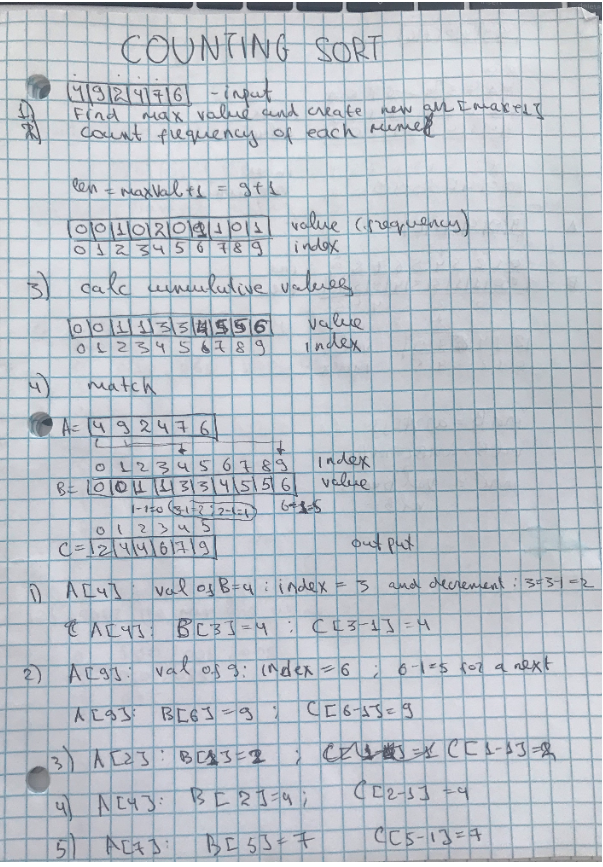 COUNTING SORT
|4|9|2|4|7|6| - input
1) Find max value and create new arr [max+1]
2) count frequency of each
len = maxval+1 = 9+1
|0|0|1|0|2|0|1|1|0|1| value (frequency)
0 1 2 3 4 5 6 7 8 9 index
3) calc cumulative values
|0|0|1|1|3|3|4|5|5|6| value
0 1 2 3 4 5 6 7 8 9 index
4) match
A= |4 9 2 4 7 6|
0 1 2 3 4 5 6 7 8 9 index
B= |0|0|1|1|3|3|4|5|5|6| value
1-1=0 (3-1=2; 2-1=1) 6-1=5
0 1 2 3 4 5
C= |2|4|4|6|7|9| output
1) A[4]: val of B=4: index = 3 and decrement: 3=3-1=2
A[4]: B[3]=4 ; C[3-1]=4
2) A[9]: val of 9: index = 6 ; 6-1=5 for a next
A[9]: B[6]=9 ; C[6-1]=9
3) A[2]: B[1]=2 ; C[1-1]=2
4) A[4]: B[2]=4; C[2-1]=4
5) A[7]: B[5]=7 C[5-1]=7